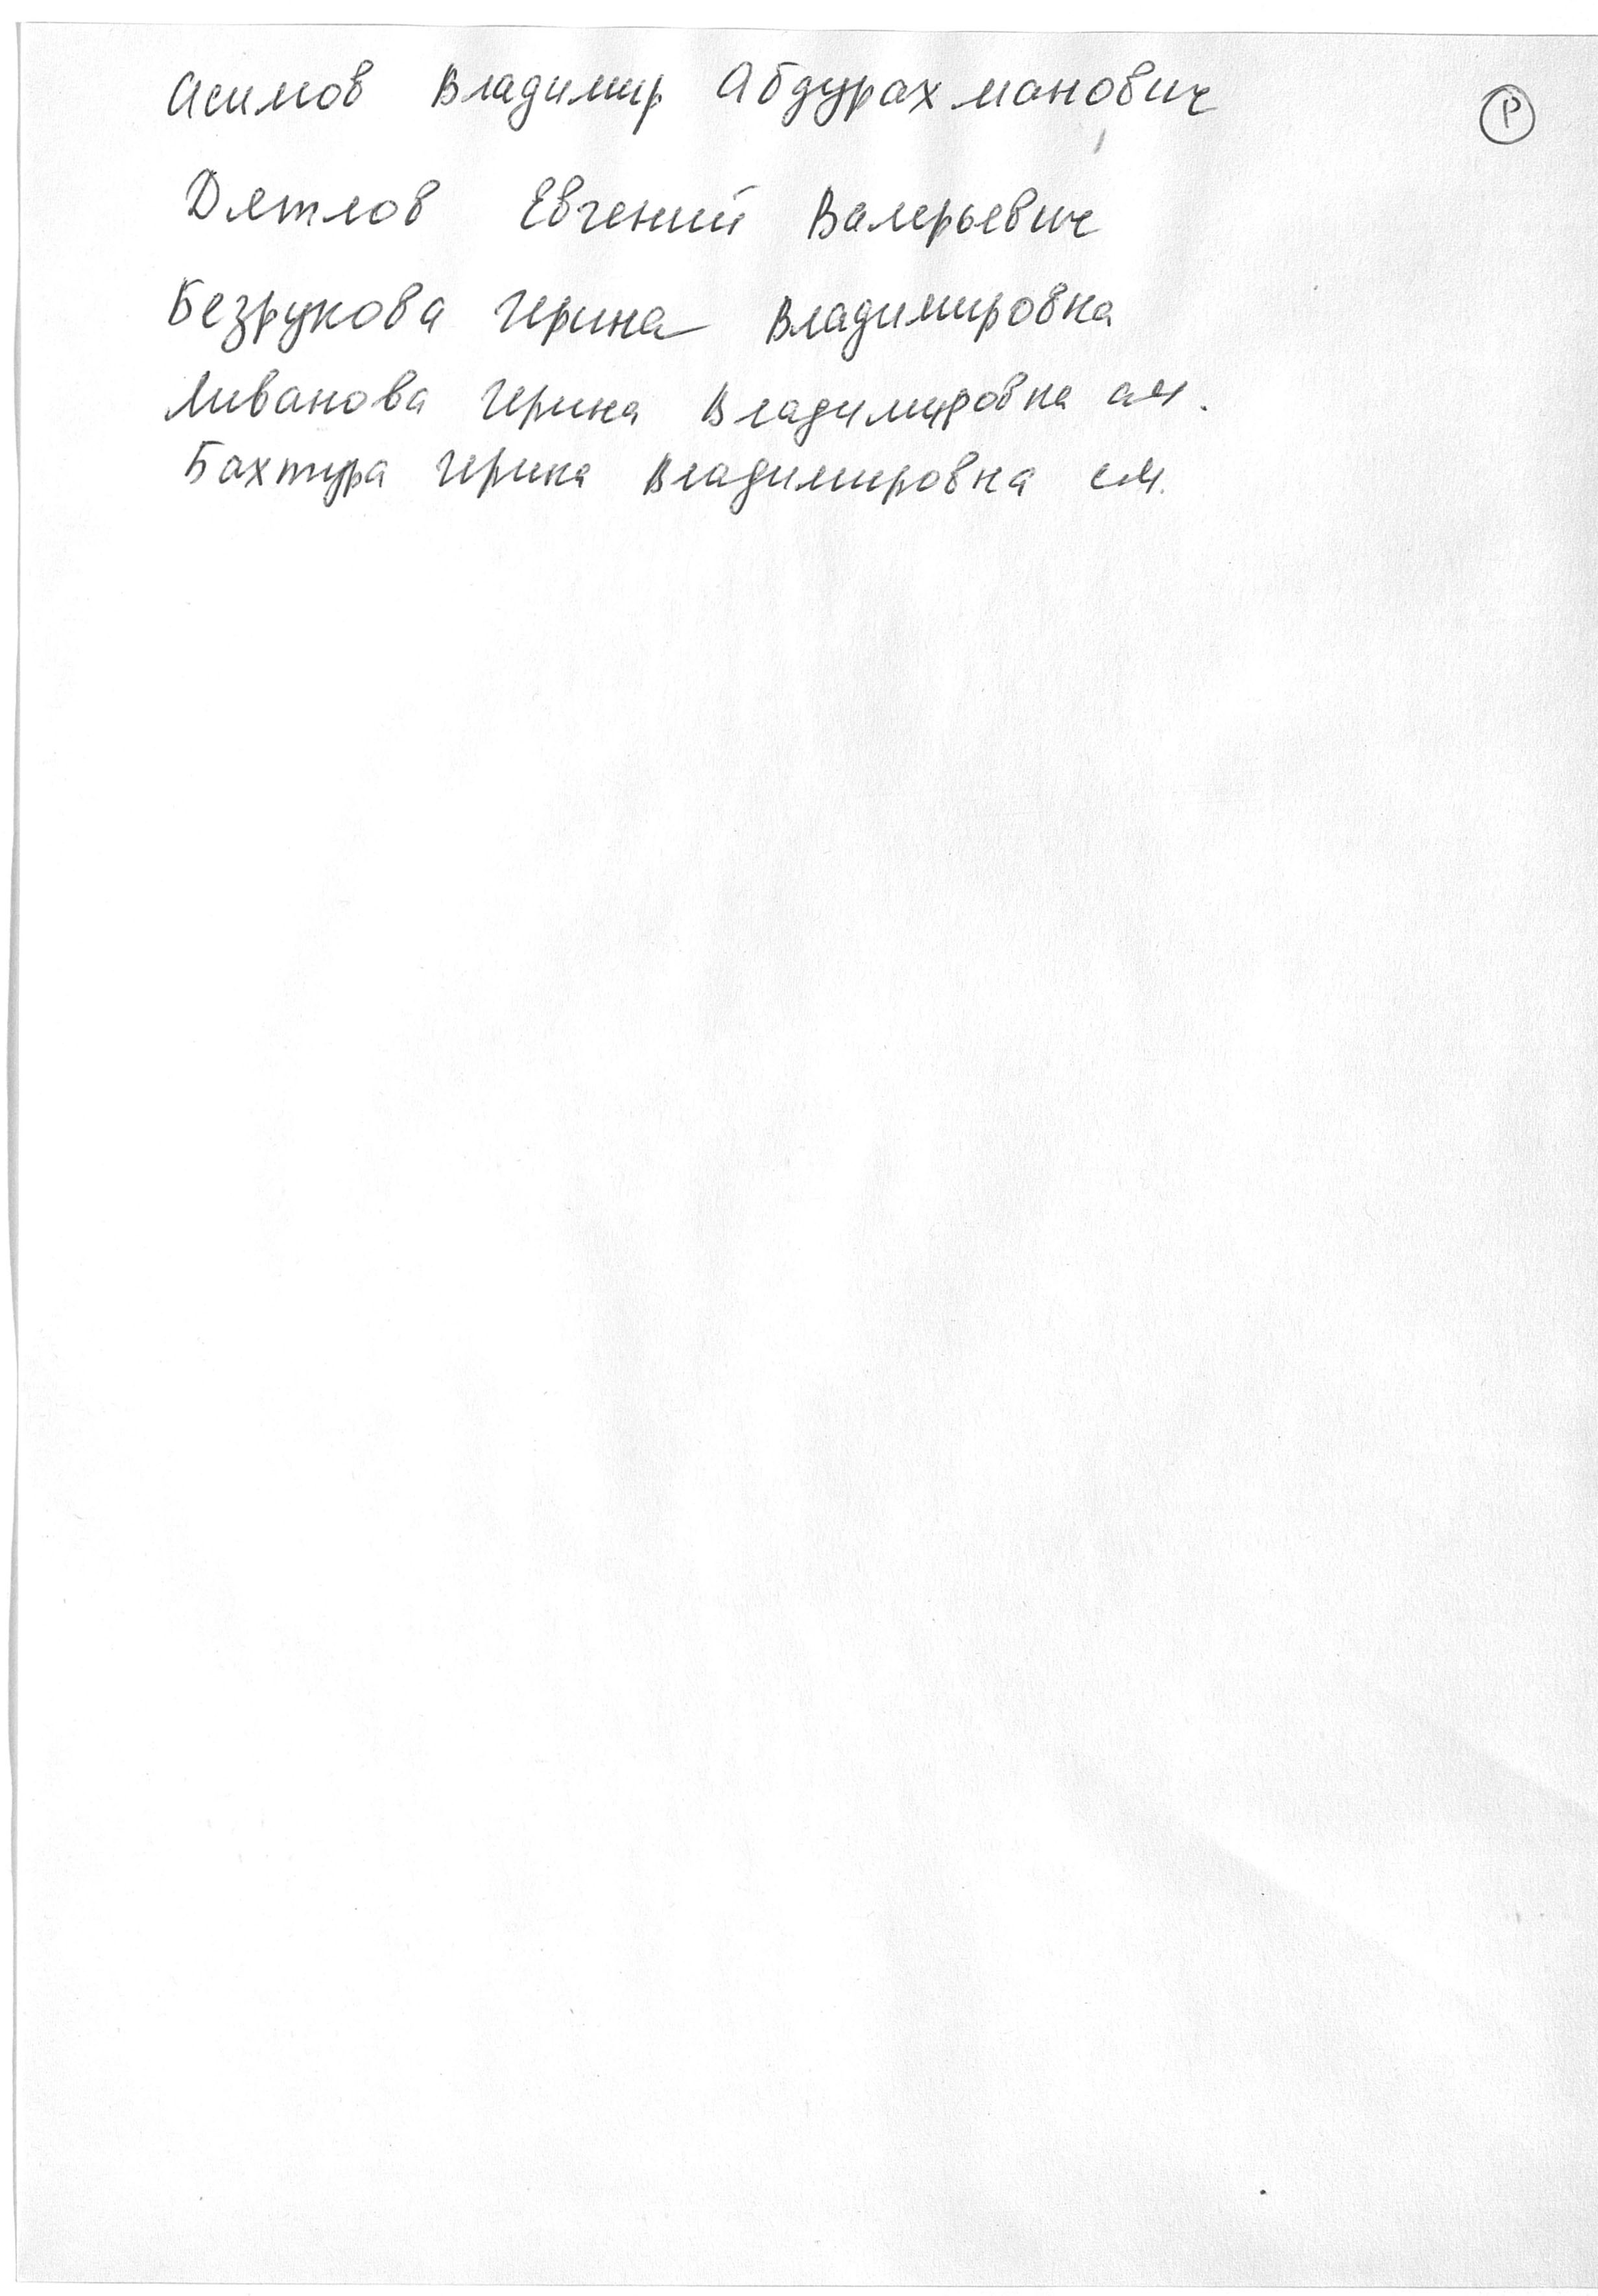 Асимов Владимир Абдурахманович
Р
Дятлов Евгений Валерьевич
Безрукова Ирина Владимировна
Ливанова Ирина Владимировна ам.
Бахтура Ирина Владимировна см.